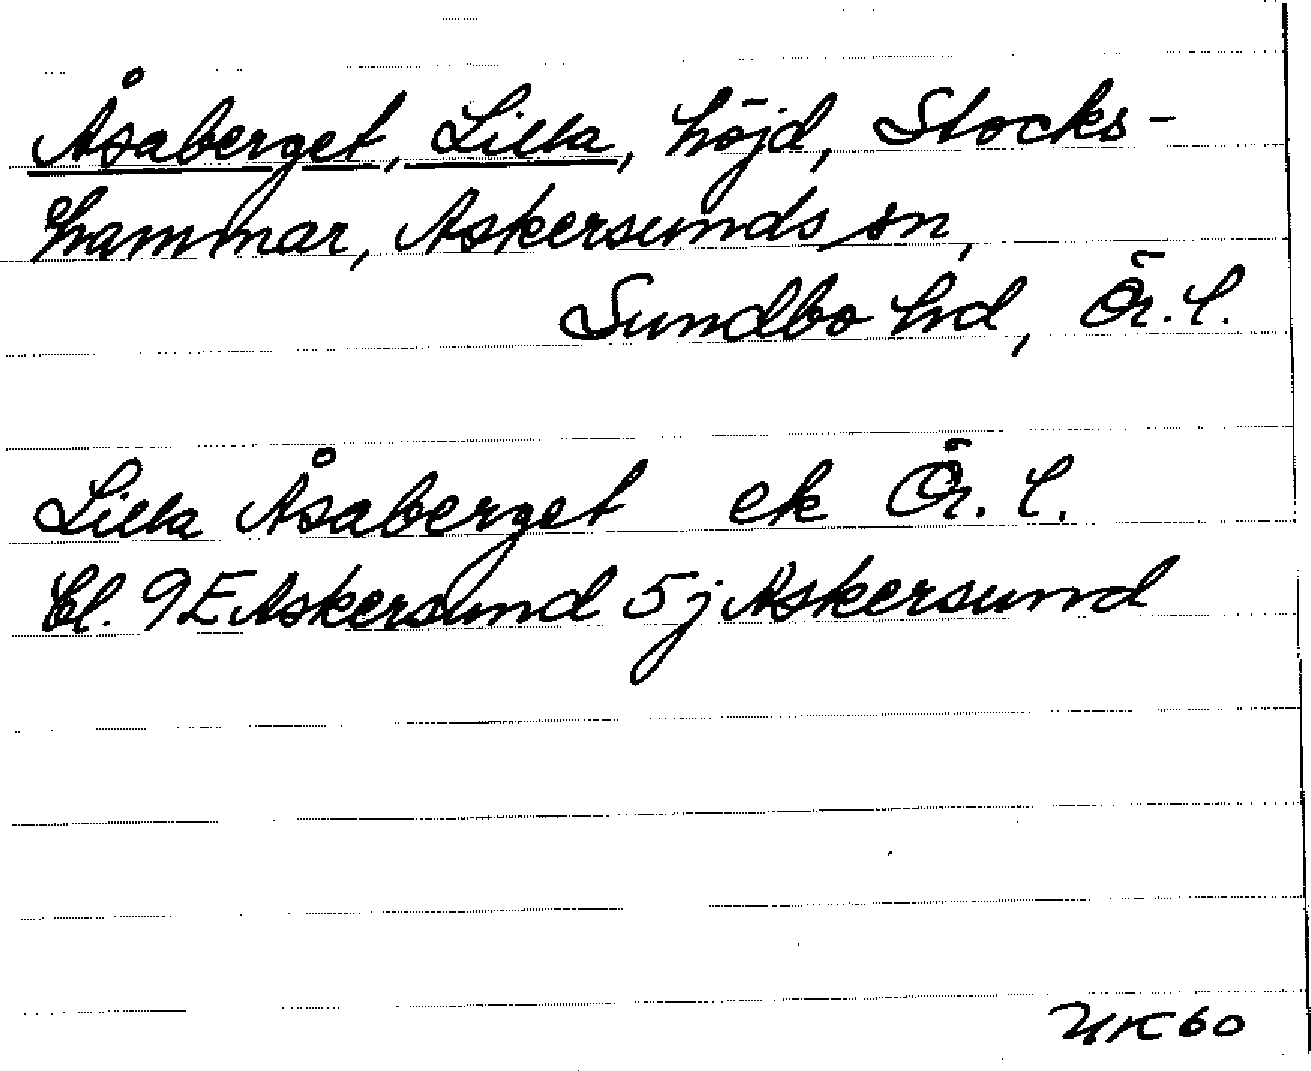 Åsaberget, Lilla, höjd, Stocks-
hammar, Askersunds sn,
Sundbo hd, Ör. l.
Lilla Åsaberget ek Ör. l.
Bl. 9E Askersund 5j Askersund
60